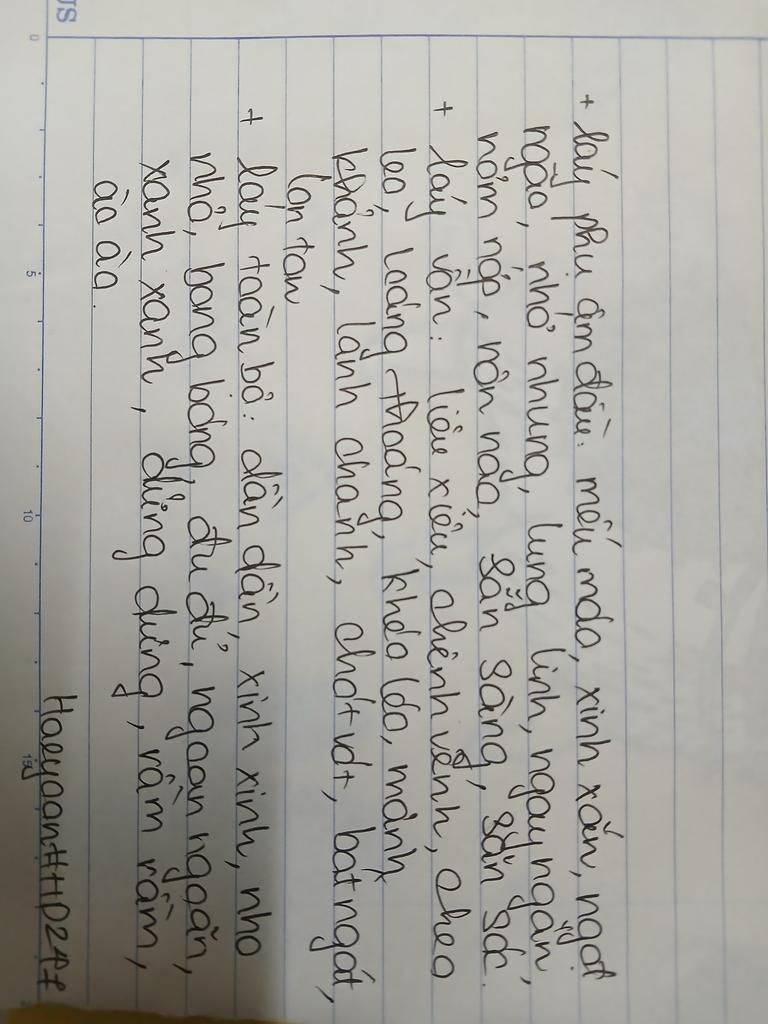 + láy phụ âm đầu: mếu máo, xinh xắn, ngọt
ngào, nhớ nhung, lung linh, ngay ngắn,
nơm nớp, nôn nao, sẵn sàng, săn sóc.
+ láy vần: liêu xiêu, chênh vênh, cheo
leo, loáng thoáng, khéo léo, mảnh
khảnh, lanh chanh, chót vót, bát ngát,
lon ton
+ láy toàn bộ: dần dần, xinh xinh, nho
nhỏ, bong bóng, đu đủ, ngoan ngoãn,
xanh xanh, dửng dưng, rầm rầm,
ào ào.
HaeyoanHHD247
US
0
5
10
15